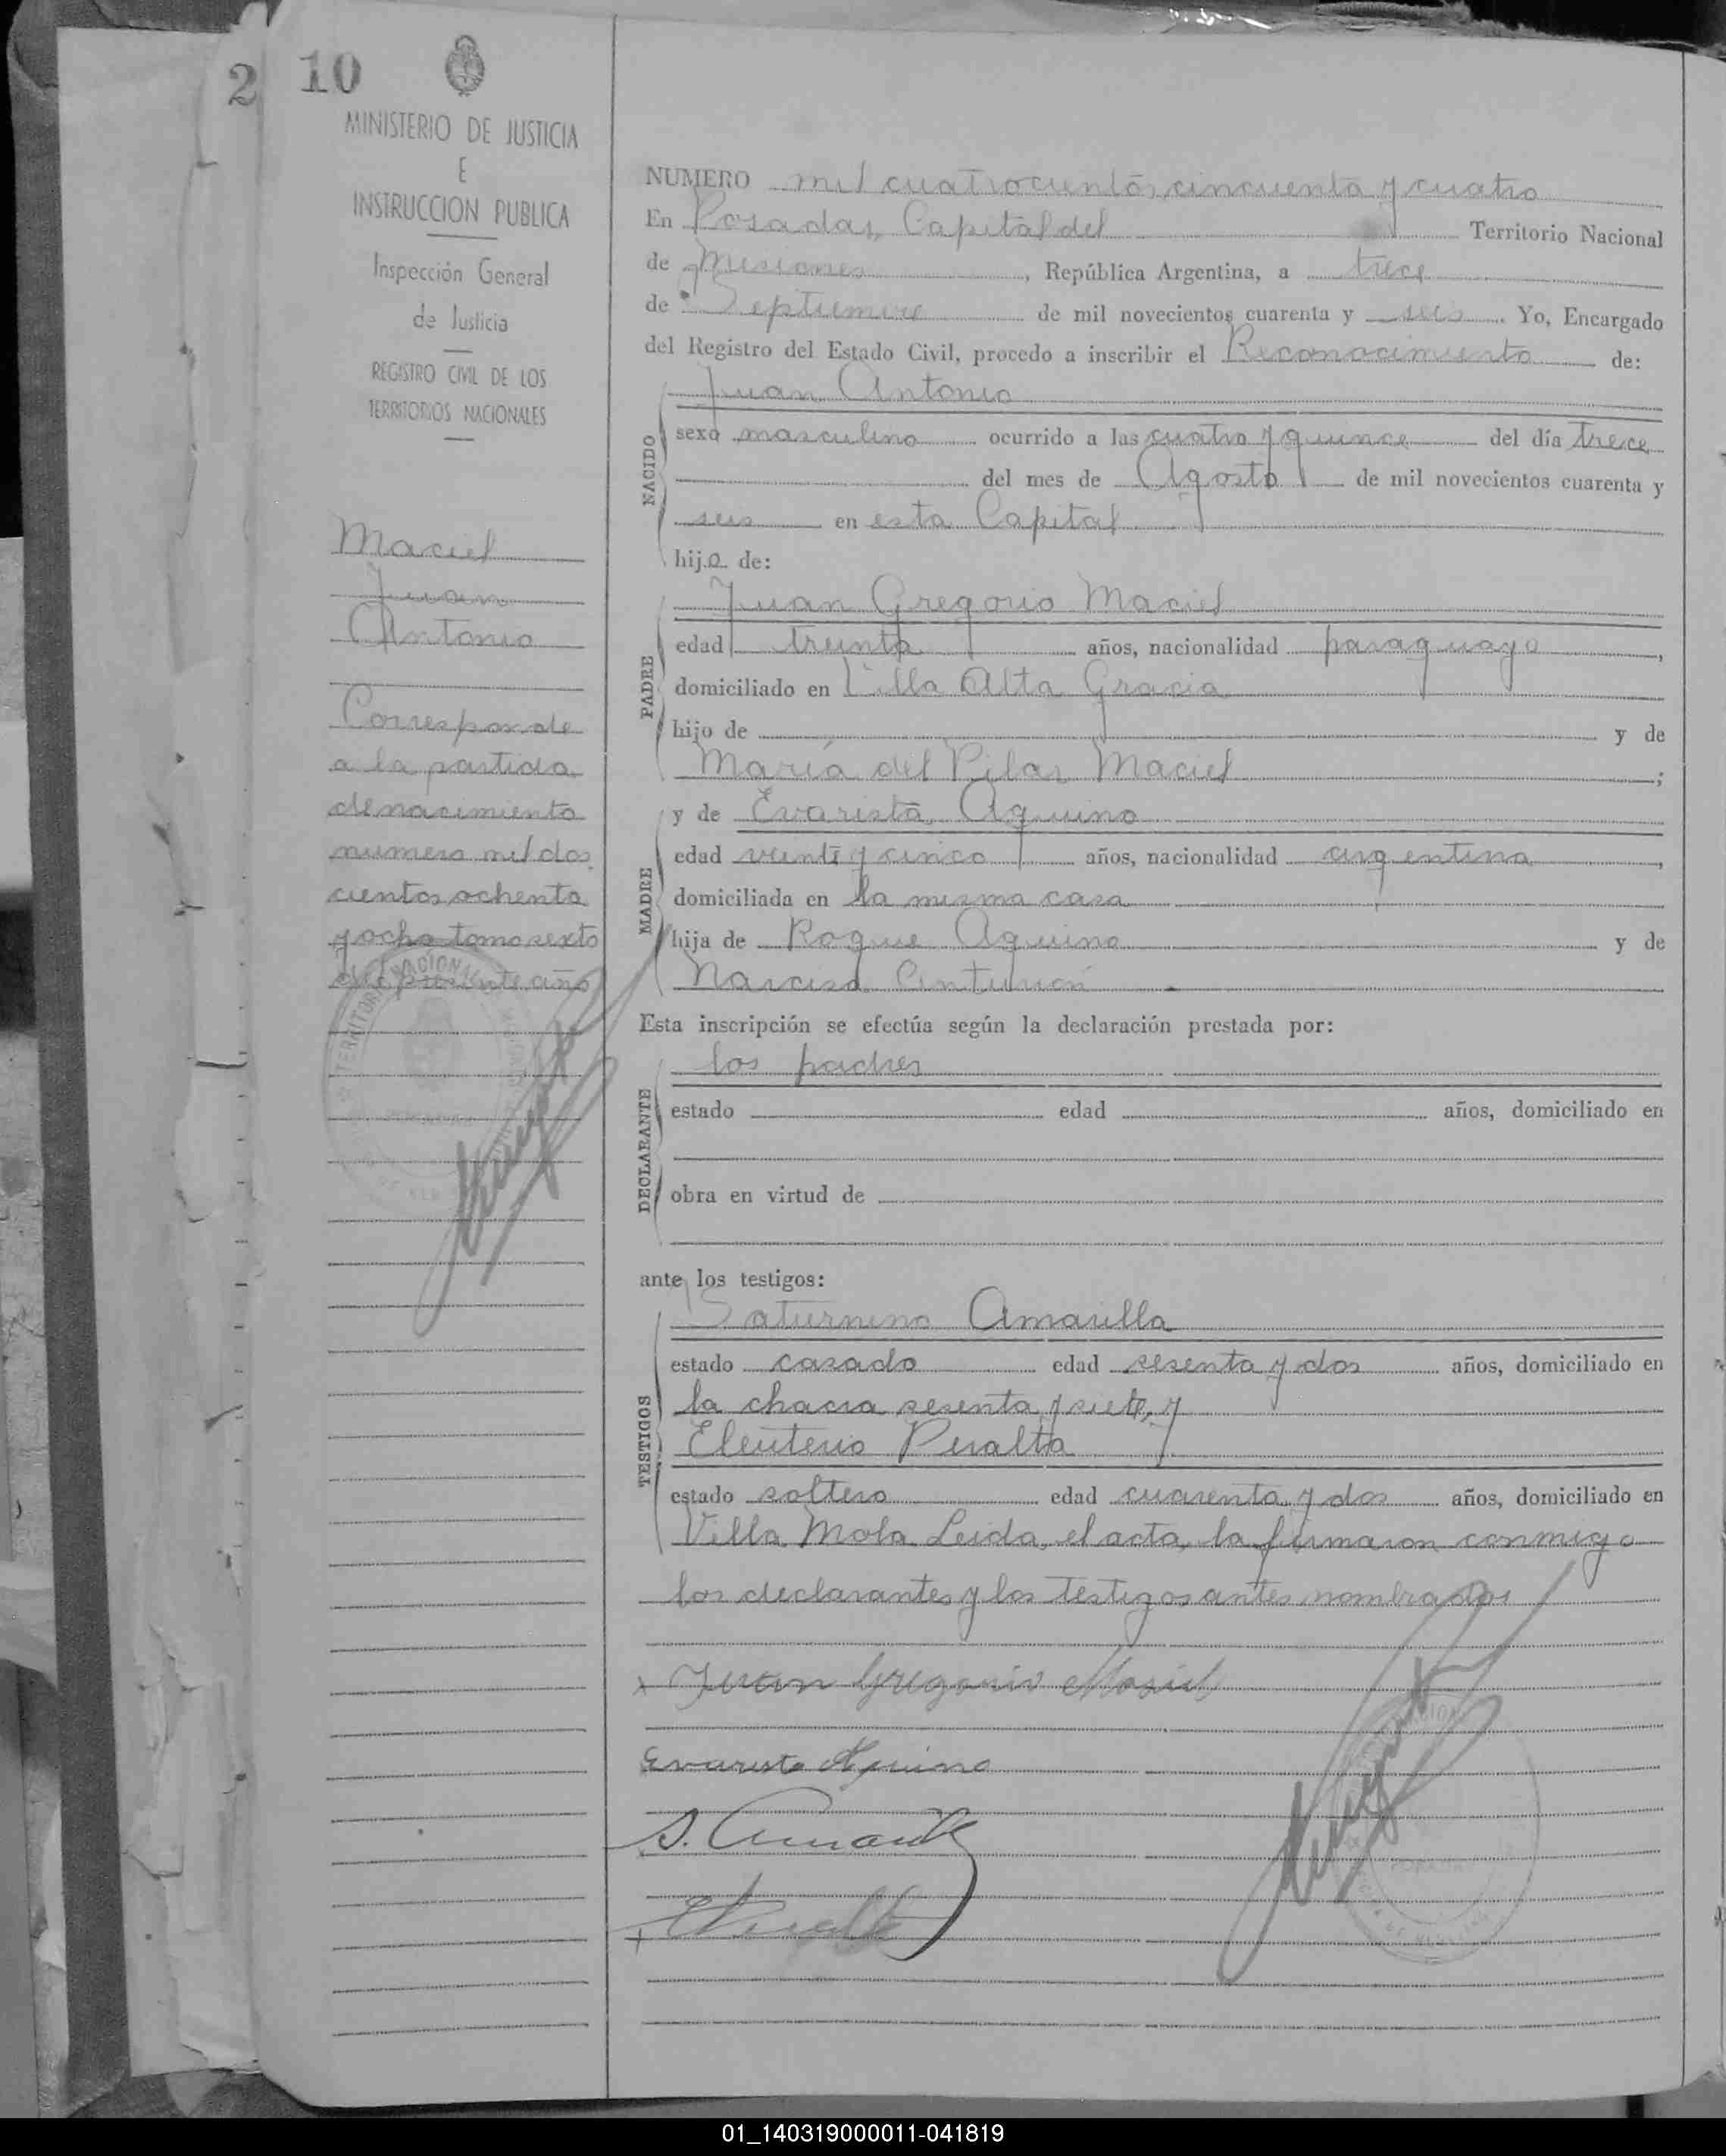 2 10
MINISTERIO DE JUSTICIA
E
INSTRUCCION PUBLICA
Inspección General
de Justicia
REGISTRO CIVIL DE LOS
TERRITORIOS NACIONALES
Maciel
Juan
Antonio
Corresponde
a la partida
de nacimiento
numero mil dos
cientos ochenta
y ocho tomo sexto
del presente año
NUMERO mil cuatrocientos cincuenta y cuatro
En Posadas, Capital del Territorio Nacional
de Misiones, República Argentina, a trece
de Septiembre de mil novecientos cuarenta y seis. Yo, Encargado
del Registro del Estado Civil, procedo a inscribir el Reconocimiento de:
NACIDO
Juan Antonio
sexo masculino ocurrido a las cuatro y quince del día trece
del mes de Agosto de mil novecientos cuarenta y
seis en esta Capital
hijo de:
PADRE
Juan Gregorio Maciel
edad treinta años, nacionalidad paraguayo,
domiciliado en Villa Alta Gracia
hijo de y de
María del Pilar Maciel;
MADRE
y de Evarista Aquino
edad veinte y cinco años, nacionalidad argentina,
domiciliada en la misma casa
hija de Roque Aquino y de
Narcisa Centurión
Esta inscripción se efectúa según la declaración prestada por:
DECLARANTE
los padres
estado edad años, domiciliado en
obra en virtud de
ante los testigos:
TESTIGOS
Saturnino Amarilla
estado casado edad sesenta y dos años, domiciliado en
la chacra sesenta y siete, y
Eleuterio Peralta
estado soltero edad cuarenta y dos años, domiciliado en
Villa Mola Leida, el acta, la firmaron conmigo
los declarantes y los testigos antes nombrados
x Juan Gregorio Masiel
Evarista Aquino
S. Amarilla
01_140319000011-041819